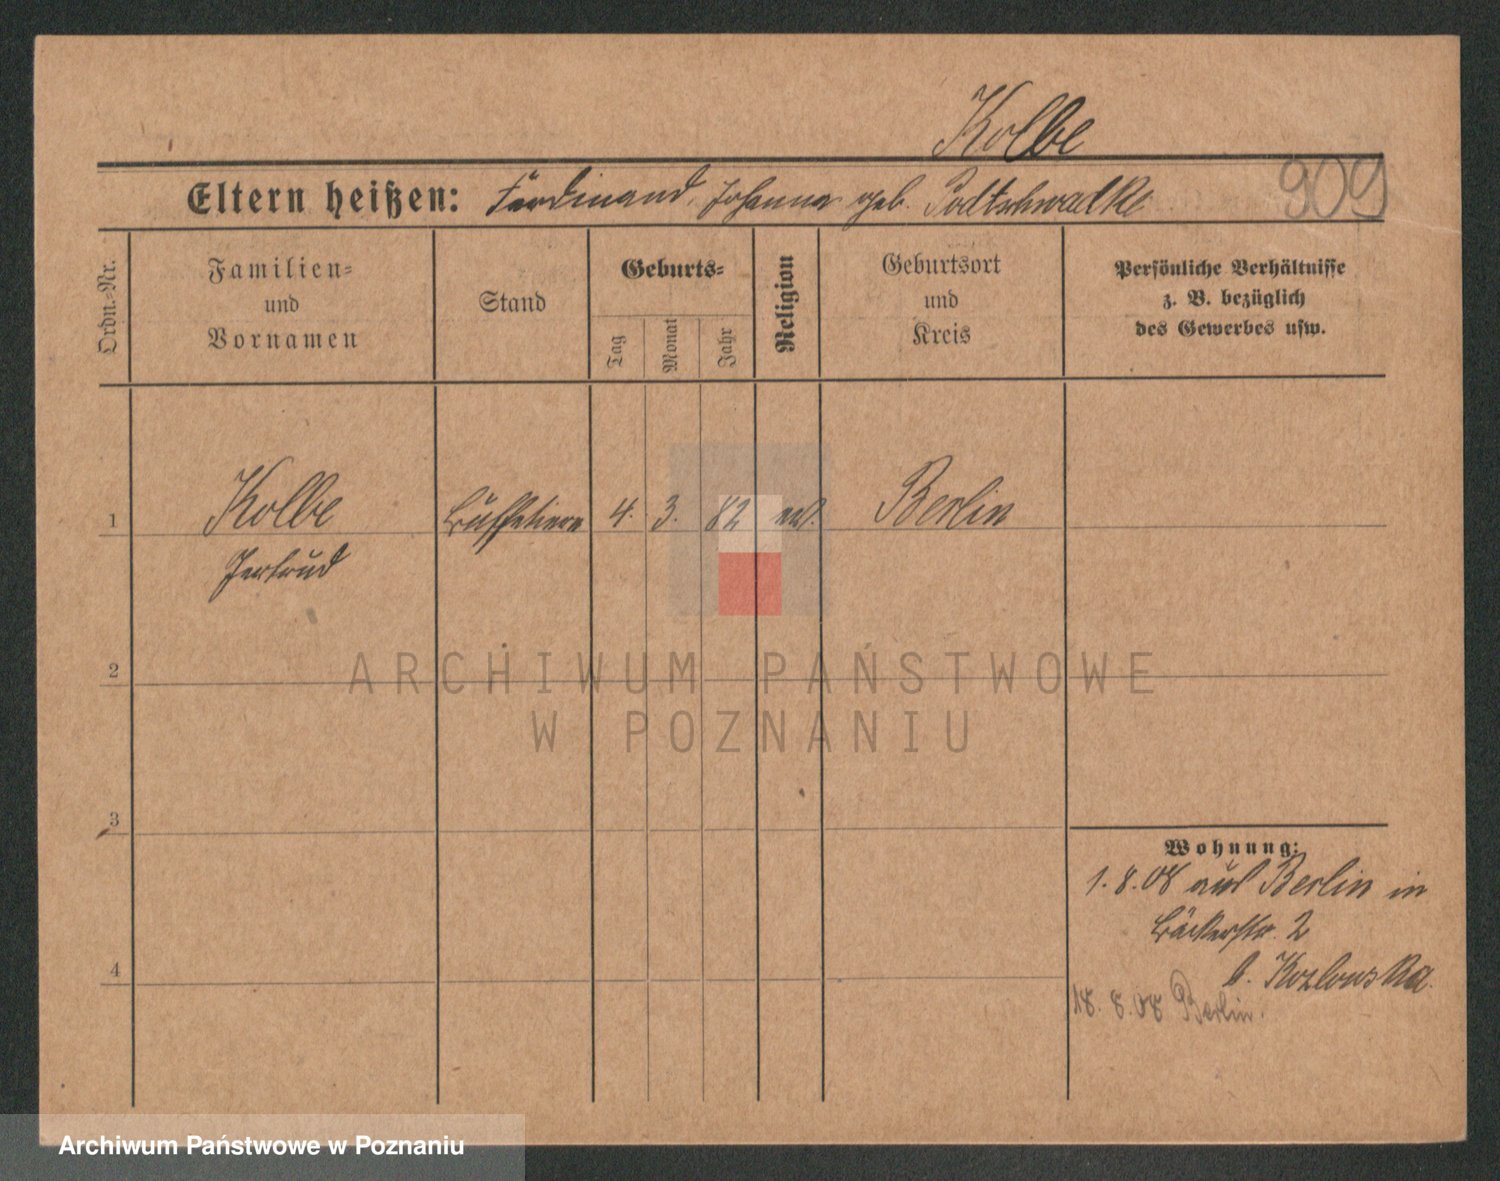 Kolbe
909
Eltern heißen: Ferdinand, Johanna geb.
Ordn.-Nr.
Familien-
und
Vornamen
Stand
Geburts-
Tag
Monat
Jahr
Religion
Geburtsort
und
Kreis
Persönliche Verhältnisse
z. B. bezüglich
des Gewerbes usw.
1 Kolbe Büffetiere 4. 3. 82 Berlin
Gertrud
2
ARCHIWUM PAŃSTWOWE
W POZNANIU
3
Wohnung:
1. 8. 08 aus Berlin in
Bäckerstr. 2
b. Kozlowska.
4
18. 8. 08 Berlin.
Archiwum Państwowe w Poznaniu